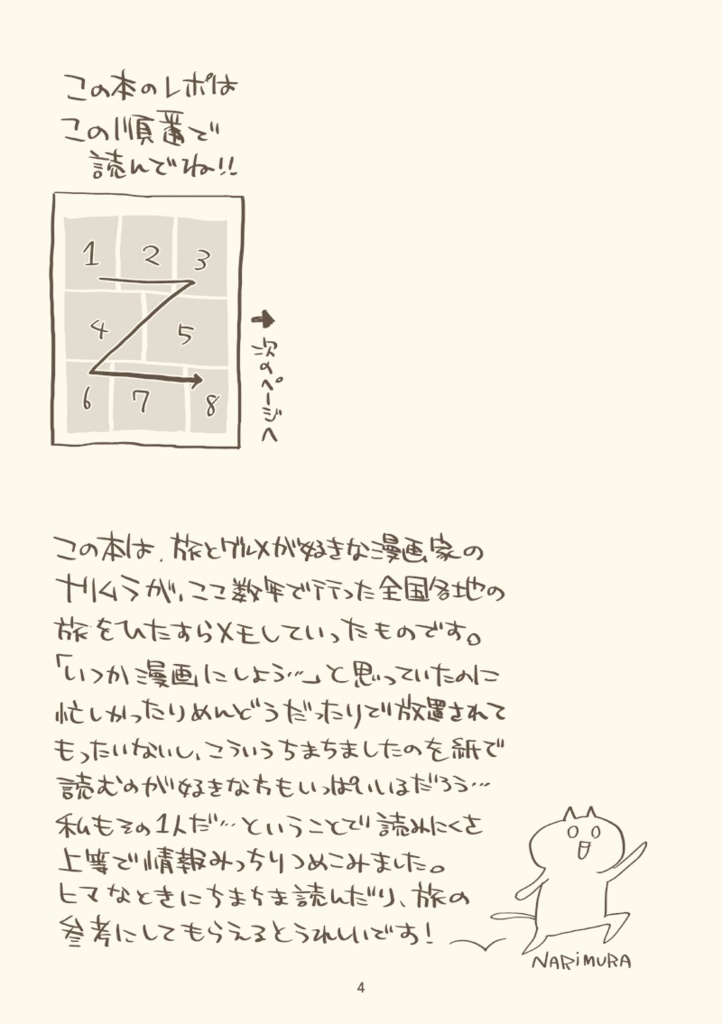 この本のレポは
この順番で
読んでね!!
1 2 3
4 5
6 7 8
→
次のページへ
この本は、旅とグルメが好きな漫画家の
ナリムラが、ここ数年で行った全国各地の
旅をひたすらメモしていったものです。
「いつか漫画にしよう…」と思っていたのに
忙しかったりめんどうだったりで放置されて
もったいないし、こういうちまちましたのを紙で
読むのが好きな方もいっぱいいるだろう…
私もその1人だ…ということで読みにくさ
上等で情報みっちりつめこみました。
ヒマなときにちまちま読んだり、旅の
参考にしてもらえるとうれしいです!
NARiMURA
4